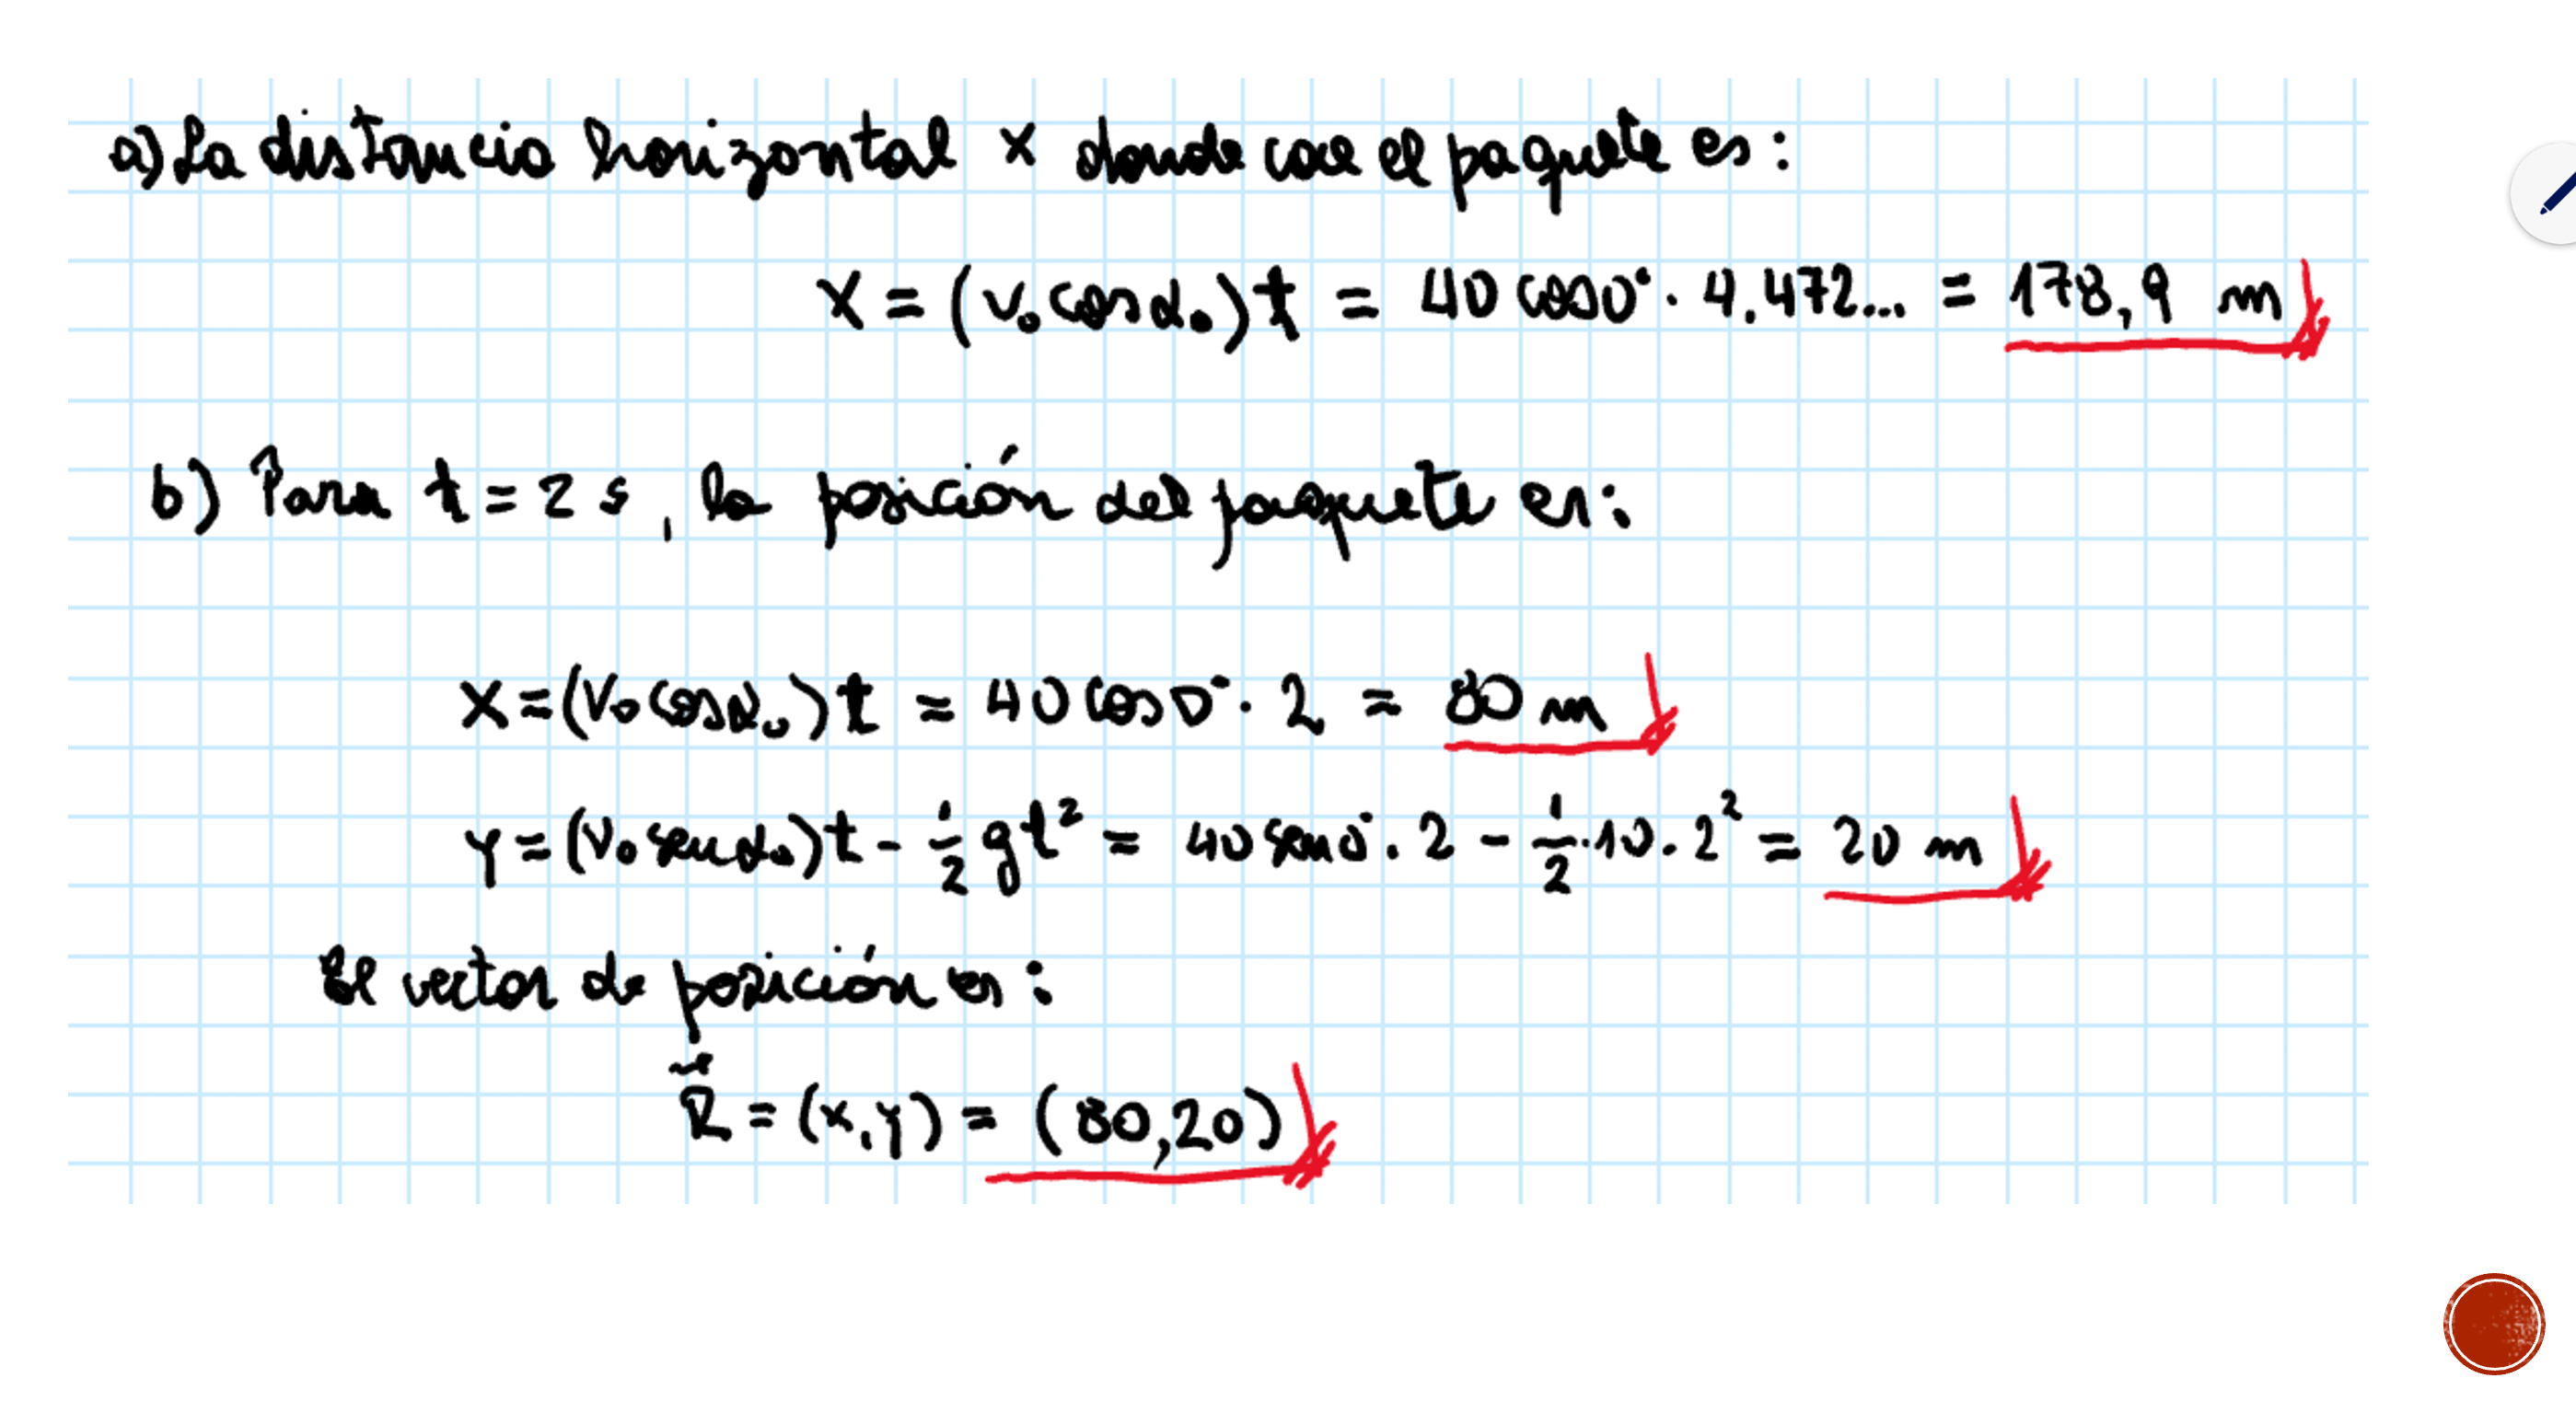 a) La distancia horizontal x donde cae el paquete es:
x = (v₀ cos α₀) t = 40 cos 0° · 4.472... = 178,9 m
b) Para t = 2 s, la posición del paquete es:
x = (v₀ cos α₀) t = 40 cos 0° · 2 = 80 m
y = (v₀ sen α₀) t - 1/2 g t² = 40 sen 0° · 2 - 1/2 · 10 · 2² = 20 m
El vector de posición es:
R⃗ = (x, y) = (80, 20)